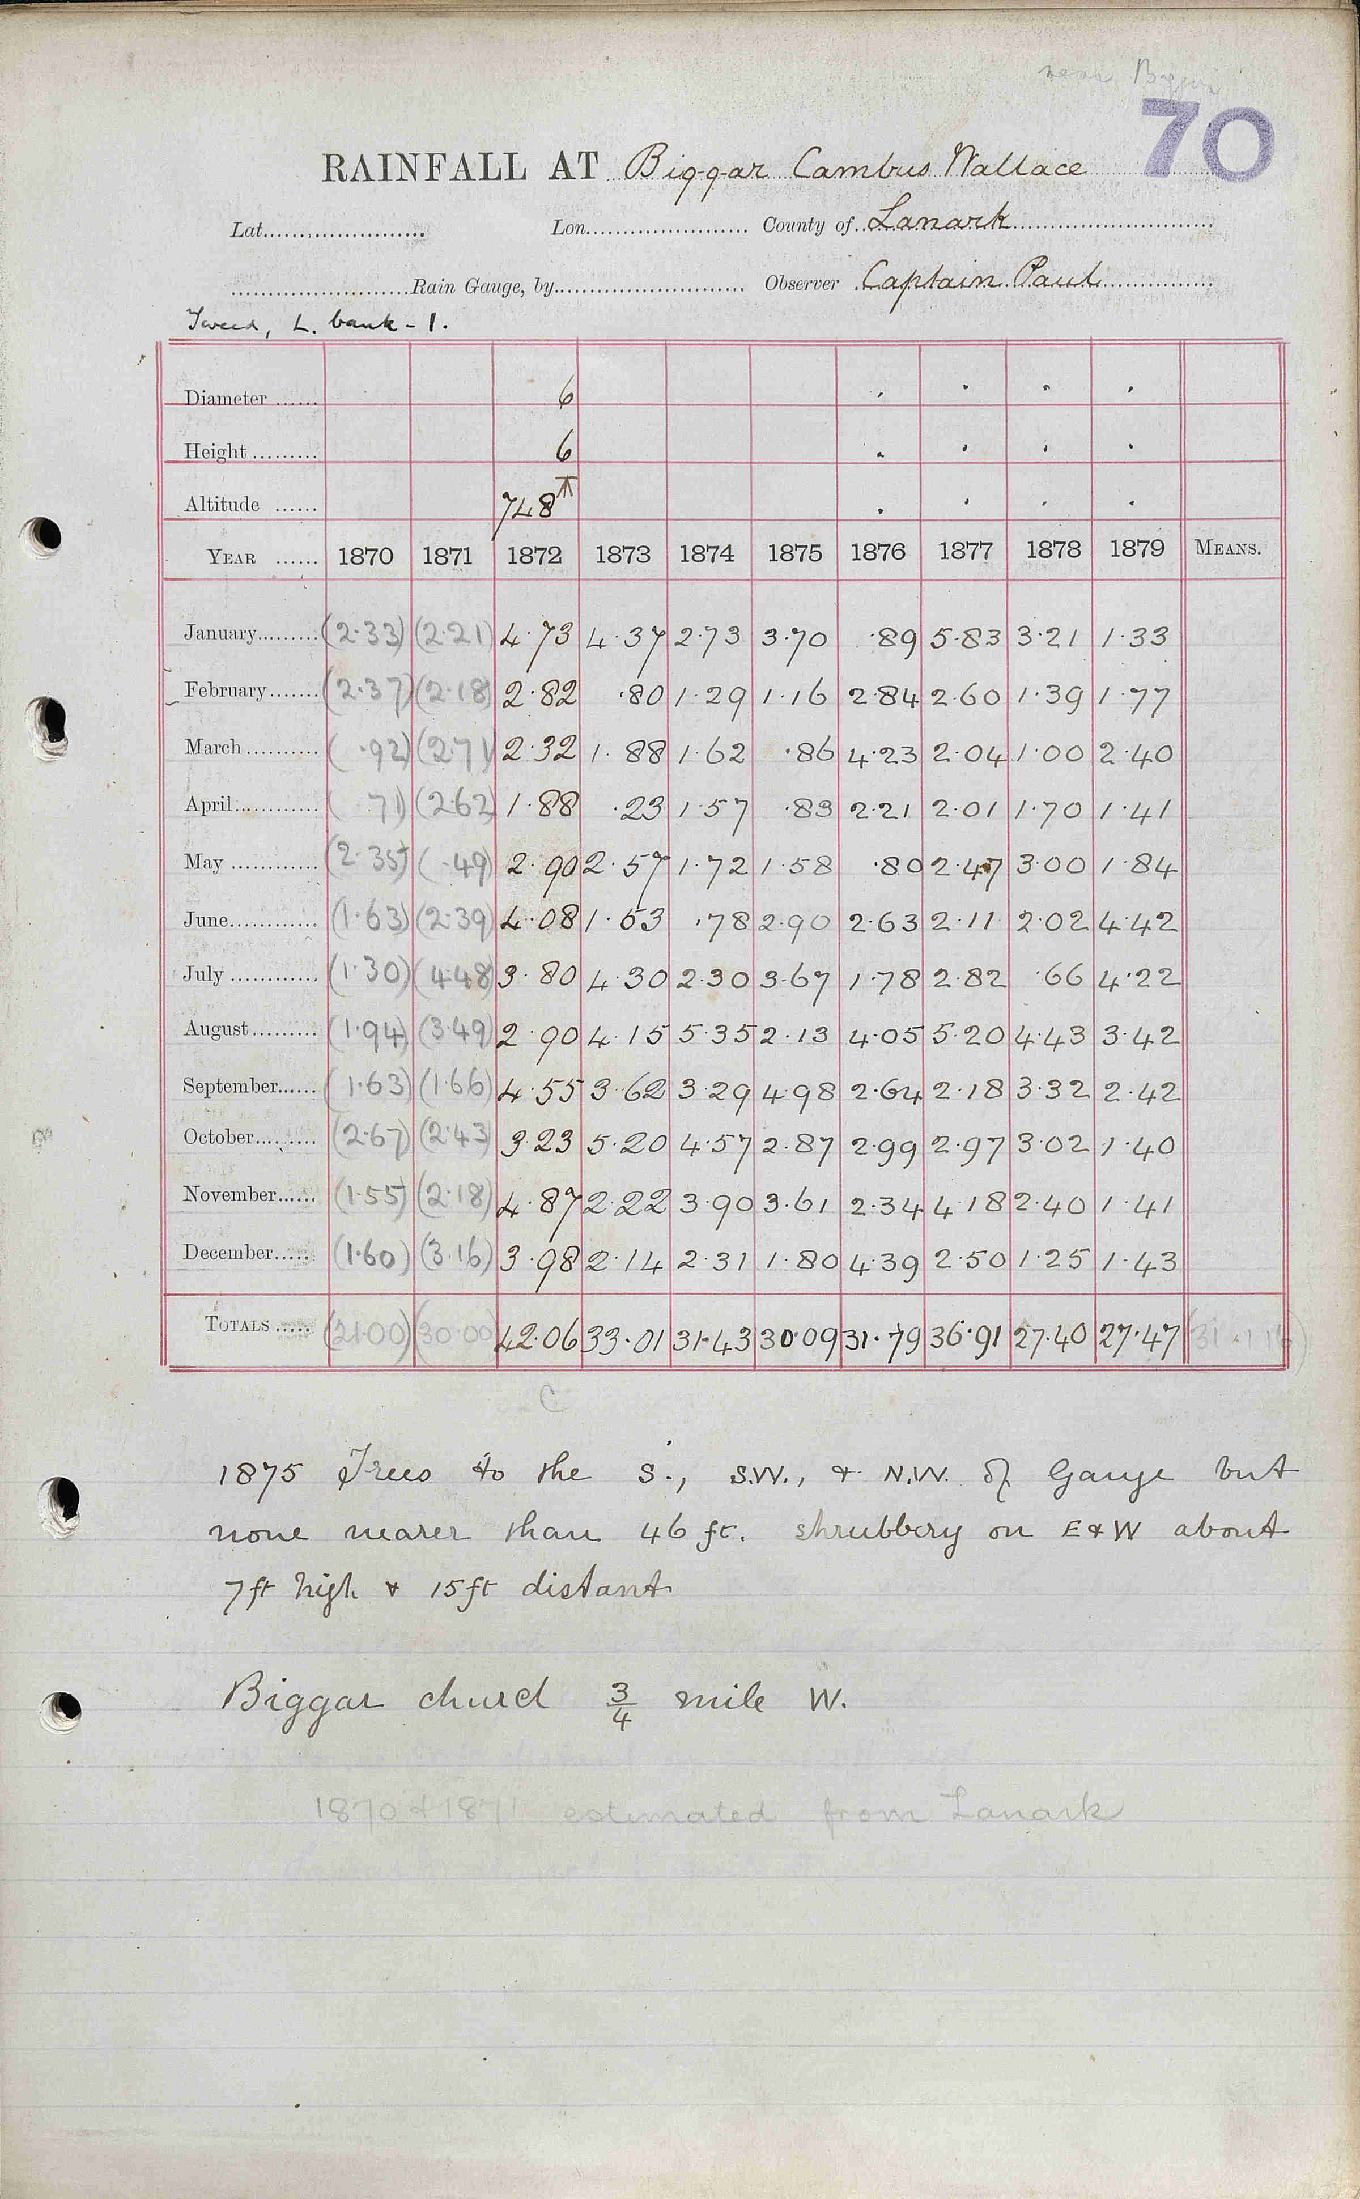 near Biggar
70
RAINFALL AT Biggar Cambus Wallace
Lat. Lon. County of Lanark
Rain Gauge, by Observer Captain Paul
Tweed, L. bank - 1.
Diameter 6 . . . .
Height 6 . . . .
Altitude 748 . . . .
YEAR 1870 1871 1872 1873 1874 1875 1876 1877 1878 1879 MEANS.
January (2.33) (2.21) 4.73 4.37 2.73 3.70 .89 5.83 3.21 1.33
February (2.37) (2.18) 2.82 .80 1.29 1.16 2.84 2.60 1.39 1.77
March ( .92) (2.71) 2.32 1.88 1.62 .86 4.23 2.04 1.00 2.40
April ( 71) (2.62) 1.88 .23 1.57 .83 2.21 2.01 1.70 1.41
May (2.35) ( .49) 2.90 2.57 1.72 1.58 .80 2.47 3.00 1.84
June (1.63) (2.39) 4.08 1.53 .78 2.90 2.63 2.11 2.02 4.42
July (1.30) (4.48) 3.80 4.30 2.30 3.67 1.78 2.82 .66 4.22
August (1.94) (3.49) 2.90 4.15 5.35 2.13 4.05 5.20 4.43 3.42
September (1.63) (1.66) 4.55 3.62 3.29 4.98 2.64 2.18 3.32 2.42
October (2.67) (2.43) 3.23 5.20 4.57 2.87 2.99 2.97 3.02 1.40
November (1.55) (2.18) 4.87 2.22 3.90 3.61 2.34 4.18 2.40 1.41
December (1.60) (3.16) 3.98 2.14 2.31 1.80 4.39 2.50 1.25 1.43
TOTALS (21.00) (30.00) 42.06 33.01 31.43 30.09 31.79 36.91 27.40 27.47
C
1875 Trees to the S., S.W., & N.W. of Gauge but
none nearer than 46 ft. shrubbery on E & W about
7ft high & 15ft distant
Biggar church 3/4 mile W.
1870 & 1871 estimated from Lanark